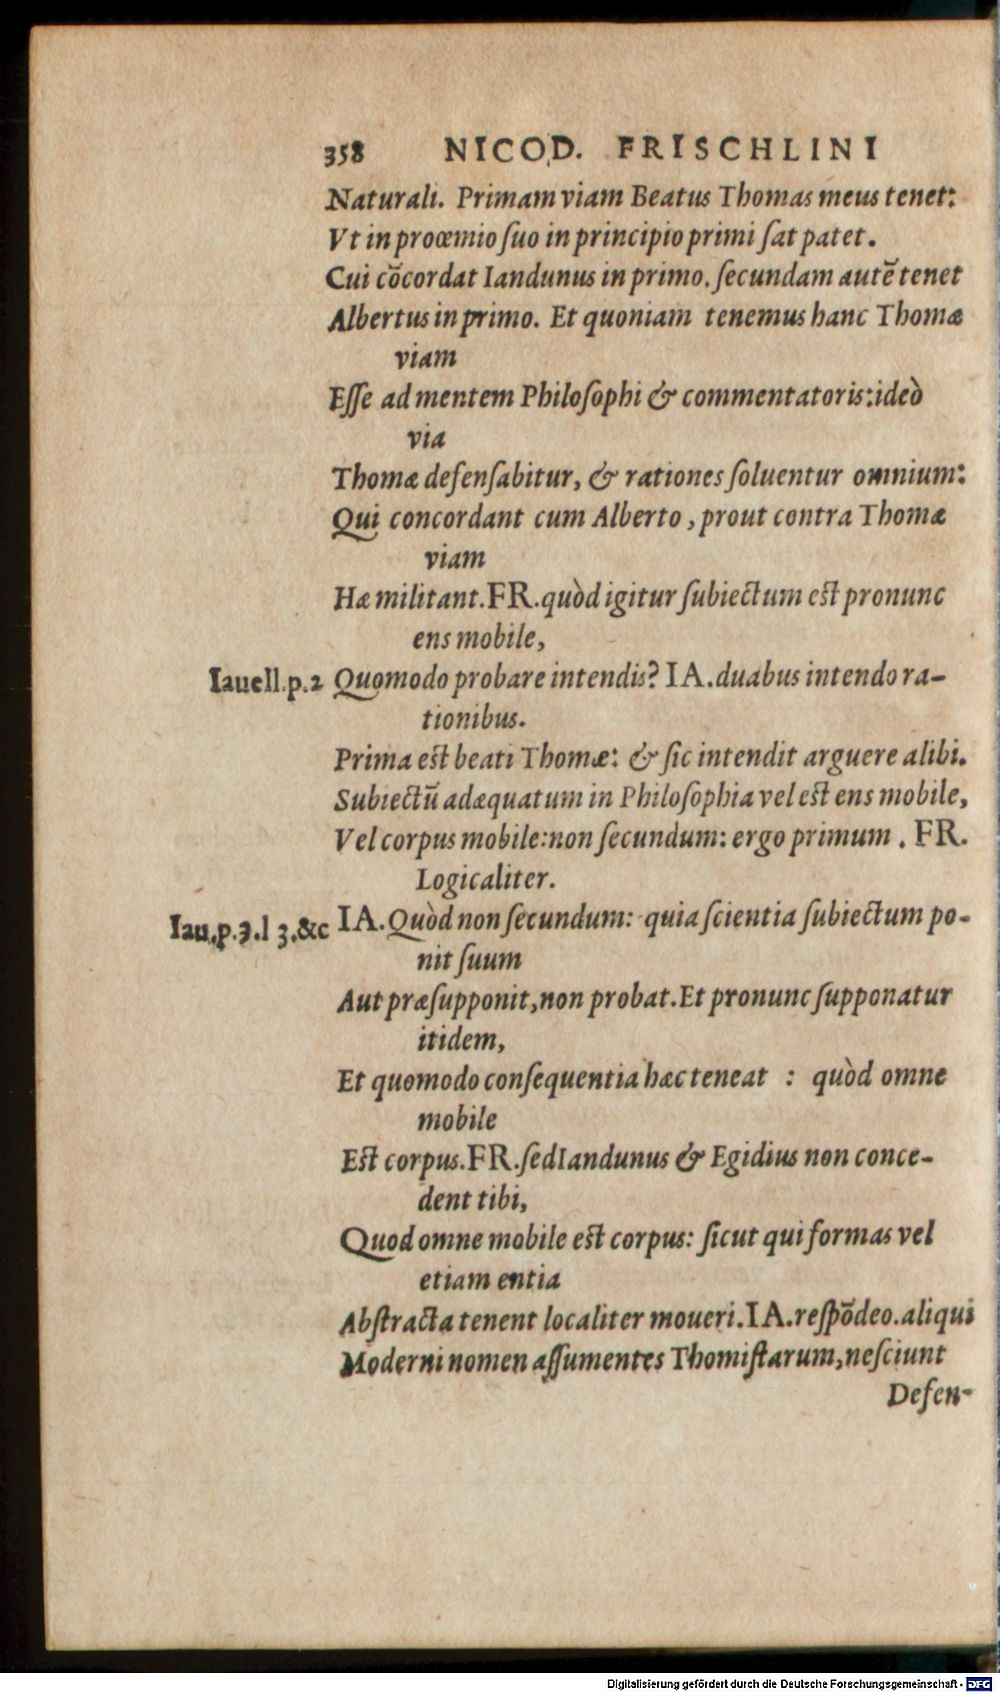 358 NICOD. FRISCHLINI
Naturali. Primam viam Beatus Thomas meus tenet:
Vt in proœmio suo in principio primi sat patet.
Cui cõcordat Iandunus in primo. secundam autẽ tenet
Albertus in primo. Et quoniam tenemus hanc Thomæ
viam
Esse ad mentem Philosophi & commentatoris: ideò
via
Thomæ defensabitur, & rationes soluentur omnium:
Qui concordant cum Alberto, prout contra Thomæ
viam
Hæ militant. FR. quòd igitur subiectum est pronunc
ens mobile,
Iauell.p.2 Quomodo probare intendis? IA. duabus intendo ra-
tionibus.
Prima est beati Thomæ: & sic intendit arguere alibi.
Subiectũ adæquatum in Philosophia vel est ens mobile,
Vel corpus mobile: non secundum: ergo primum. FR.
Logicaliter.
Iau.p.3.l 3.&c IA. Quòd non secundum: quia scientia subiectum po-
nit suum
Aut præsupponit, non probat. Et pronunc supponatur
itidem,
Et quomodo consequentia hæc teneat : quòd omne
mobile
Est corpus. FR. sed Iandunus & Egidius non conce-
dent tibi,
Quod omne mobile est corpus: sicut qui formas vel
etiam entia
Abstracta tenent localiter moueri. IA. respõdeo. aliqui
Moderni nomen assumentes Thomistarum, nesciunt
Defen-
Digitalisierung gefördert durch die Deutsche Forschungsgemeinschaft - DFG